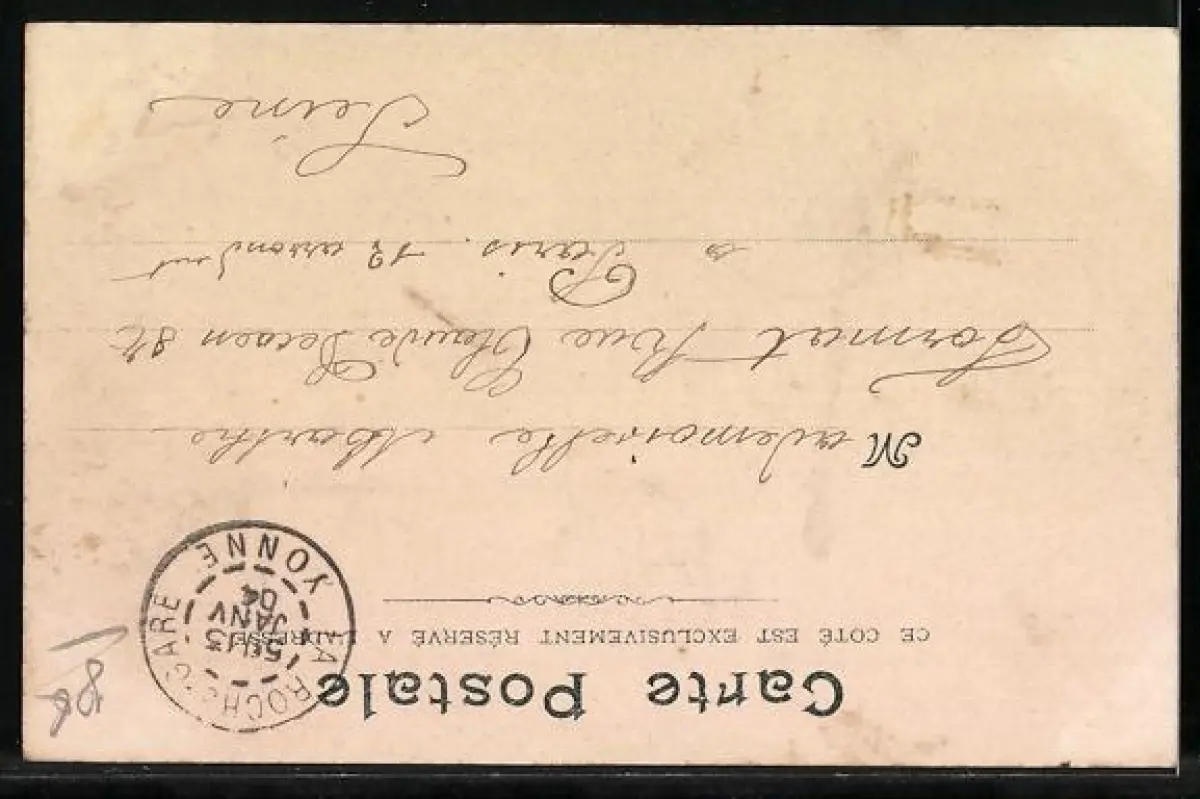 Carte Postale
CE COTÉ EST EXCLUSIVEMENT RÉSERVÉ A L'ADRESSE
LAROCHE-GARE
5E 13
JANV
04
YONNE
Mademoiselle Marthe
Rue Claude Decaen 84
a Paris. 12 arrondnt
Seine